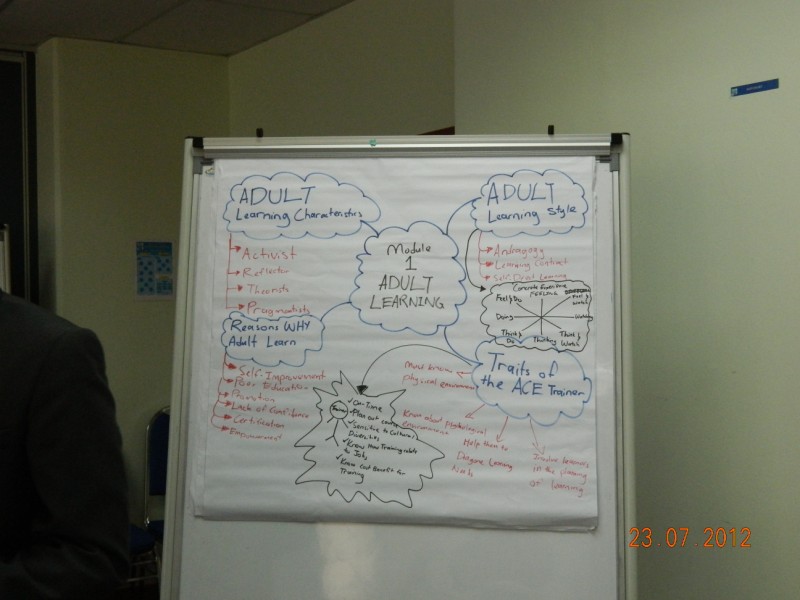 ADULT
Learning Characteristics
Activist
Reflector
Theorists
Pragmatists
Module
1
ADULT
LEARNING
ADULT
Learning Style
Andragogy
Learning Contract
Self-Direct Learning
Concrete Experience
FEELING
Feel & Do
Feel &
Watch
Doing
Watching
Think &
Do
Thinking
Think &
Watch
Reasons WHY
Adult Learn
Self-Improvement
Poor Education
Promotion
Lack of Confidence
Certification
Empowerment
Trainer
✓ On-Time
✓ Plan out course
✓ Sensitive to Cultural
Diversities
✓ Know How Training relate
to Jobs
✓ Know Cost Benefit for
Training
Traits of
the ACE Trainer
Must know
physical environment
Know about psychological
environment
Help them to
Diagnose Learning
Needs
Involve learners
in the planning
of learning
23.07.2012